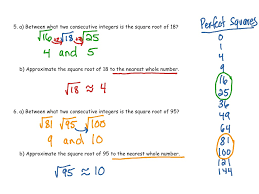 5. a) Between what two consecutive integers is the square root of 18?
√16 √18 √25
4 and 5
b) Approximate the square root of 18 to the nearest whole number.
√18 ≈ 4
6. a) Between what two consecutive integers is the square root of 95?
√81 √95 √100
9 and 10
b) Approximate the square root of 95 to the nearest whole number.
√95 ≈ 10
Perfect Squares
0
1
4
9
16
25
36
49
64
81
100
121
144